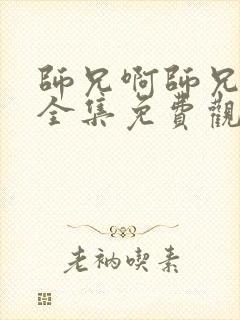 師兄啊師兄
全集免費觀
老衲喫素